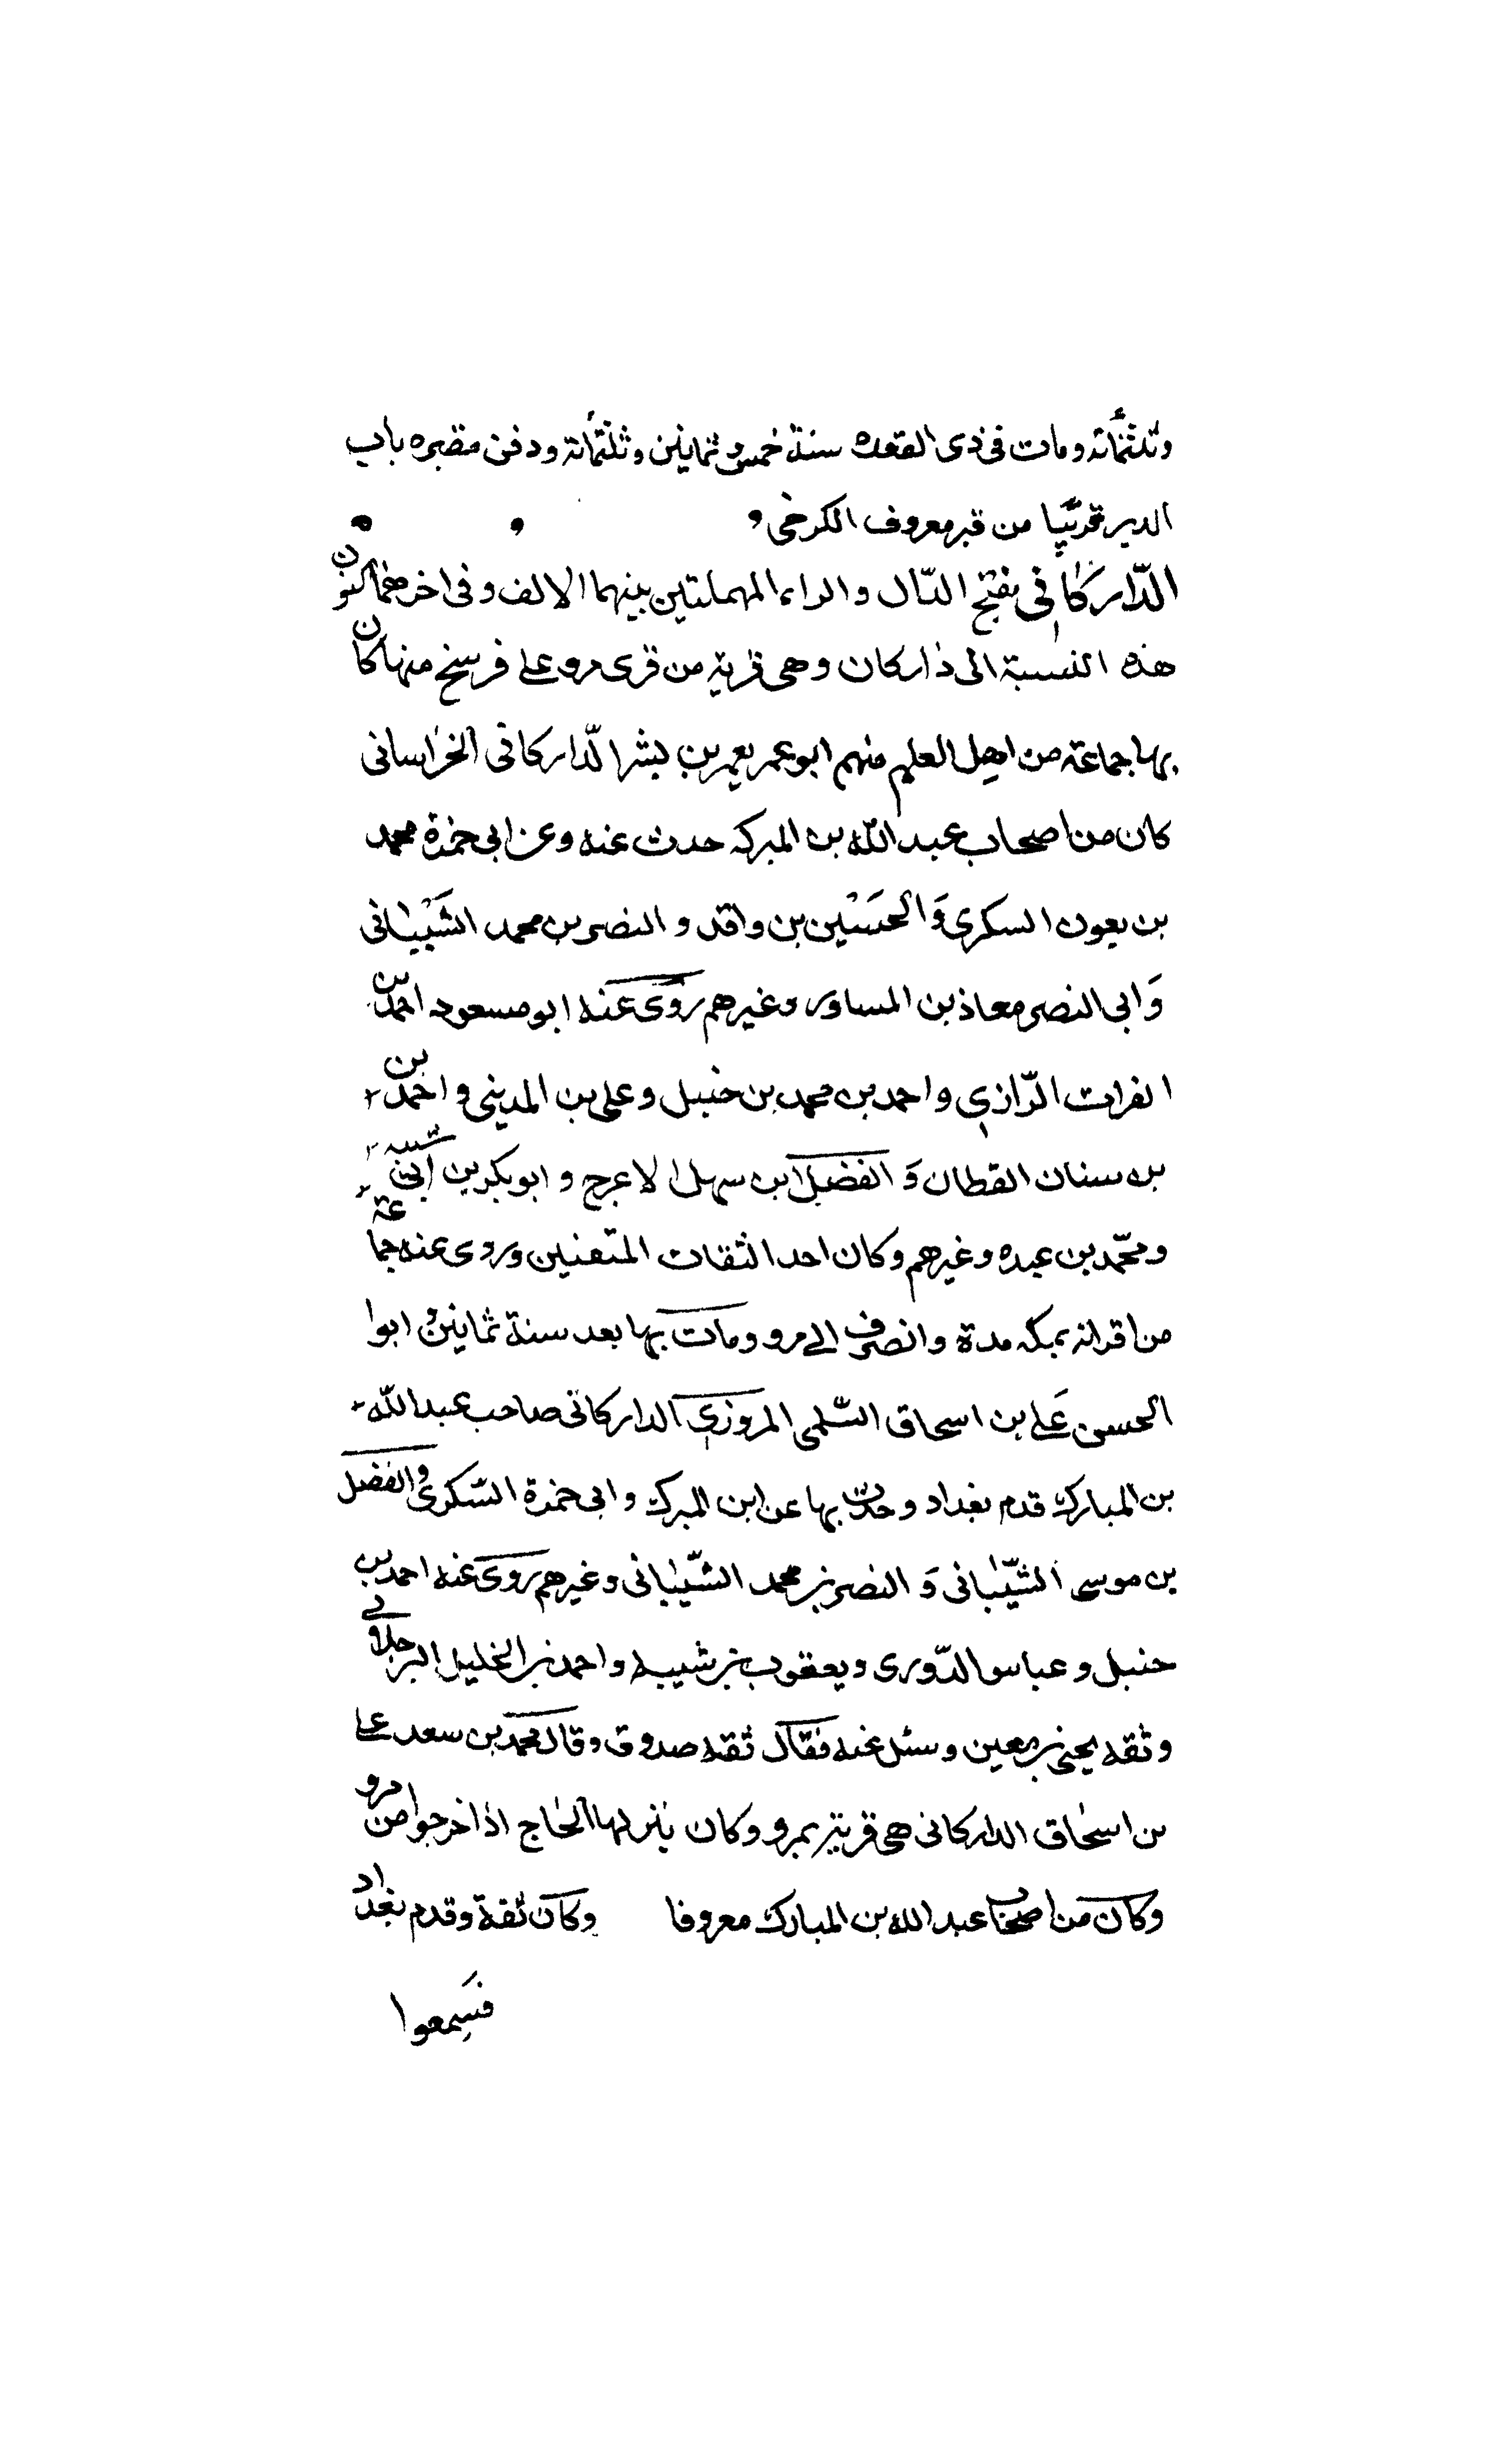 وثلثمائة ومات فى ذى القعده سنة خمس و ثمانين وثلثمائة ودفن مقبره باب
الدير قريبا من قبر معروف الكرخى
الدّاركانى بفتح الدّال والراء المهملتين بينهما الالف وفى اخرهما النون
هذه النسبة الى داركان وهى قرية من قرى مرو على فرسخ منها كان
بها جماعة من اهل العلم منهم ابو عمر يعمر بن بشر الدّاركانى الخراسانى
كان من اصحاب عبد الله بن المبرك حدث عنه وعن ابى حمزة محمد
بن بعون السكرى وَالحسَيْن بن واقد و النضر بن محمد الشَيْبانى
وَابى النضر معاذ بن المساور وغيرهم روى عنه ابو مسعود احمد بن
الفرات الرّازى و احمد بن محمد بن حنبل وعلى بن المدينى و احمد بن
بن سنان القطان وَ الفضل ابن سهل الاعرج و ابو بكر بن ابى شيبه
ومحّمد بن عبده وغيرهم وكان احد الثقات المتقنين وروى عنه جماعة
من اقرانه بمكه مدة وانصرف الى مرو ومات بها بعد سنة ثمانين و ابوا
الحسن عَلى بن اسحاق السّلمى المروزى الداركانى صاحب عبد اللّه
بن المبارك قدم بغداد وحدث بها عن ابن المبرك وابى حمزة السّكرى والفضل
بن موسى الشّيبانى وَ النضر بن محمد الشّيبانى وغيرهم روى عنه احمد بن
حنبل و عباس الدّورى ويعقوب بن شيبه و احمد بن الخليل البرجلانى
وثقه يحيى بن معين وسئل عنه فقال ثقه صدوق وقال محمد بن سعد على
بن اسحاق الداركانى هى قرية بمرو وكان ينزلها الحاج اذا خرجوا من مرو
وكان من اصحاب عبد الله بن المبارك معروفا وكان ثقة وقدم بغداد
فسَمِعوا